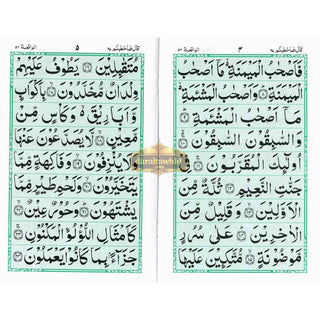 قال فما خطبكم ٢٧ ٤ الواقعة ٥٦
فَاَصْحٰبُ الْمَيْمَنَةِ ۙ مَاۤ اَصْحٰبُ
الْمَيْمَنَةِ ۝٨ وَاَصْحٰبُ الْمَشْـَٔمَةِ ۙ
مَاۤ اَصْحٰبُ الْمَشْـَٔمَةِ ۝٩
وَالسّٰبِقُوْنَ السّٰبِقُوْنَ ۝١٠
اُولٰٓئِكَ الْمُقَرَّبُوْنَ ۝١١ فِيْ
جَنّٰتِ النَّعِيْمِ ۝١٢ ثُلَّةٌ مِّنَ
الْاَوَّلِيْنَ ۝١٣ وَقَلِيْلٌ مِّنَ
الْاٰخِرِيْنَ ۝١٤ عَلٰى سُرُرٍ
مَّوْضُوْنَةٍ ۝١٥ مُّتَّكِـِٕيْنَ عَلَيْهَا
قال فما خطبكم ٢٧ ٥ الواقعة ٥٦
مُتَقٰبِلِيْنَ ۝١٦ يَطُوْفُ عَلَيْهِمْ
وِلْدَانٌ مُّخَلَّدُوْنَ ۝١٧ بِاَكْوَابٍ
وَّاَبَارِيْقَ ۙ وَكَاْسٍ مِّنْ
مَّعِيْنٍ ۝١٨ لَّا يُصَدَّعُوْنَ عَنْهَا
وَلَا يُنْزِفُوْنَ ۝١٩ وَفَاكِهَةٍ مِّمَّا
يَتَخَيَّرُوْنَ ۝٢٠ وَلَحْمِ طَيْرٍ مِّمَّا
يَشْتَهُوْنَ ۝٢١ وَحُوْرٌ عِيْنٌ ۝٢٢
كَاَمْثَالِ اللُّؤْلُؤِ الْمَكْنُوْنِ ۝٢٣
جَزَآءًۢ بِمَا كَانُوْا يَعْمَلُوْنَ ۝٢٤
daraltawhid